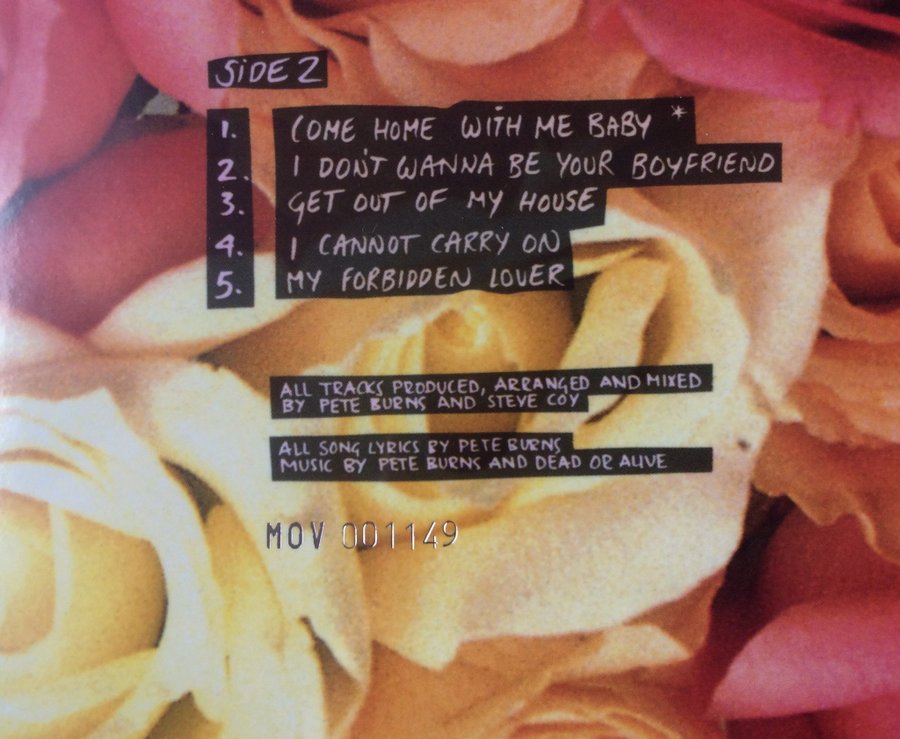 SiDE 2
1. COME HOME WiTH ME BABY *
2. I DON'T WANNA BE YOUR BOYFRIEND
3. GET OUT OF MY HOUSE
4. I CANNOT CARRY ON
5. MY FORBIDDEN LOVER
ALL TRACKS PRODUCED, ARRANGED AND MIXED
BY PETE BURNS AND STEVE COY
ALL SONG LYRICS BY PETE BURNS
MUSIC BY PETE BURNS AND DEAD OR ALIVE
MOV 001149